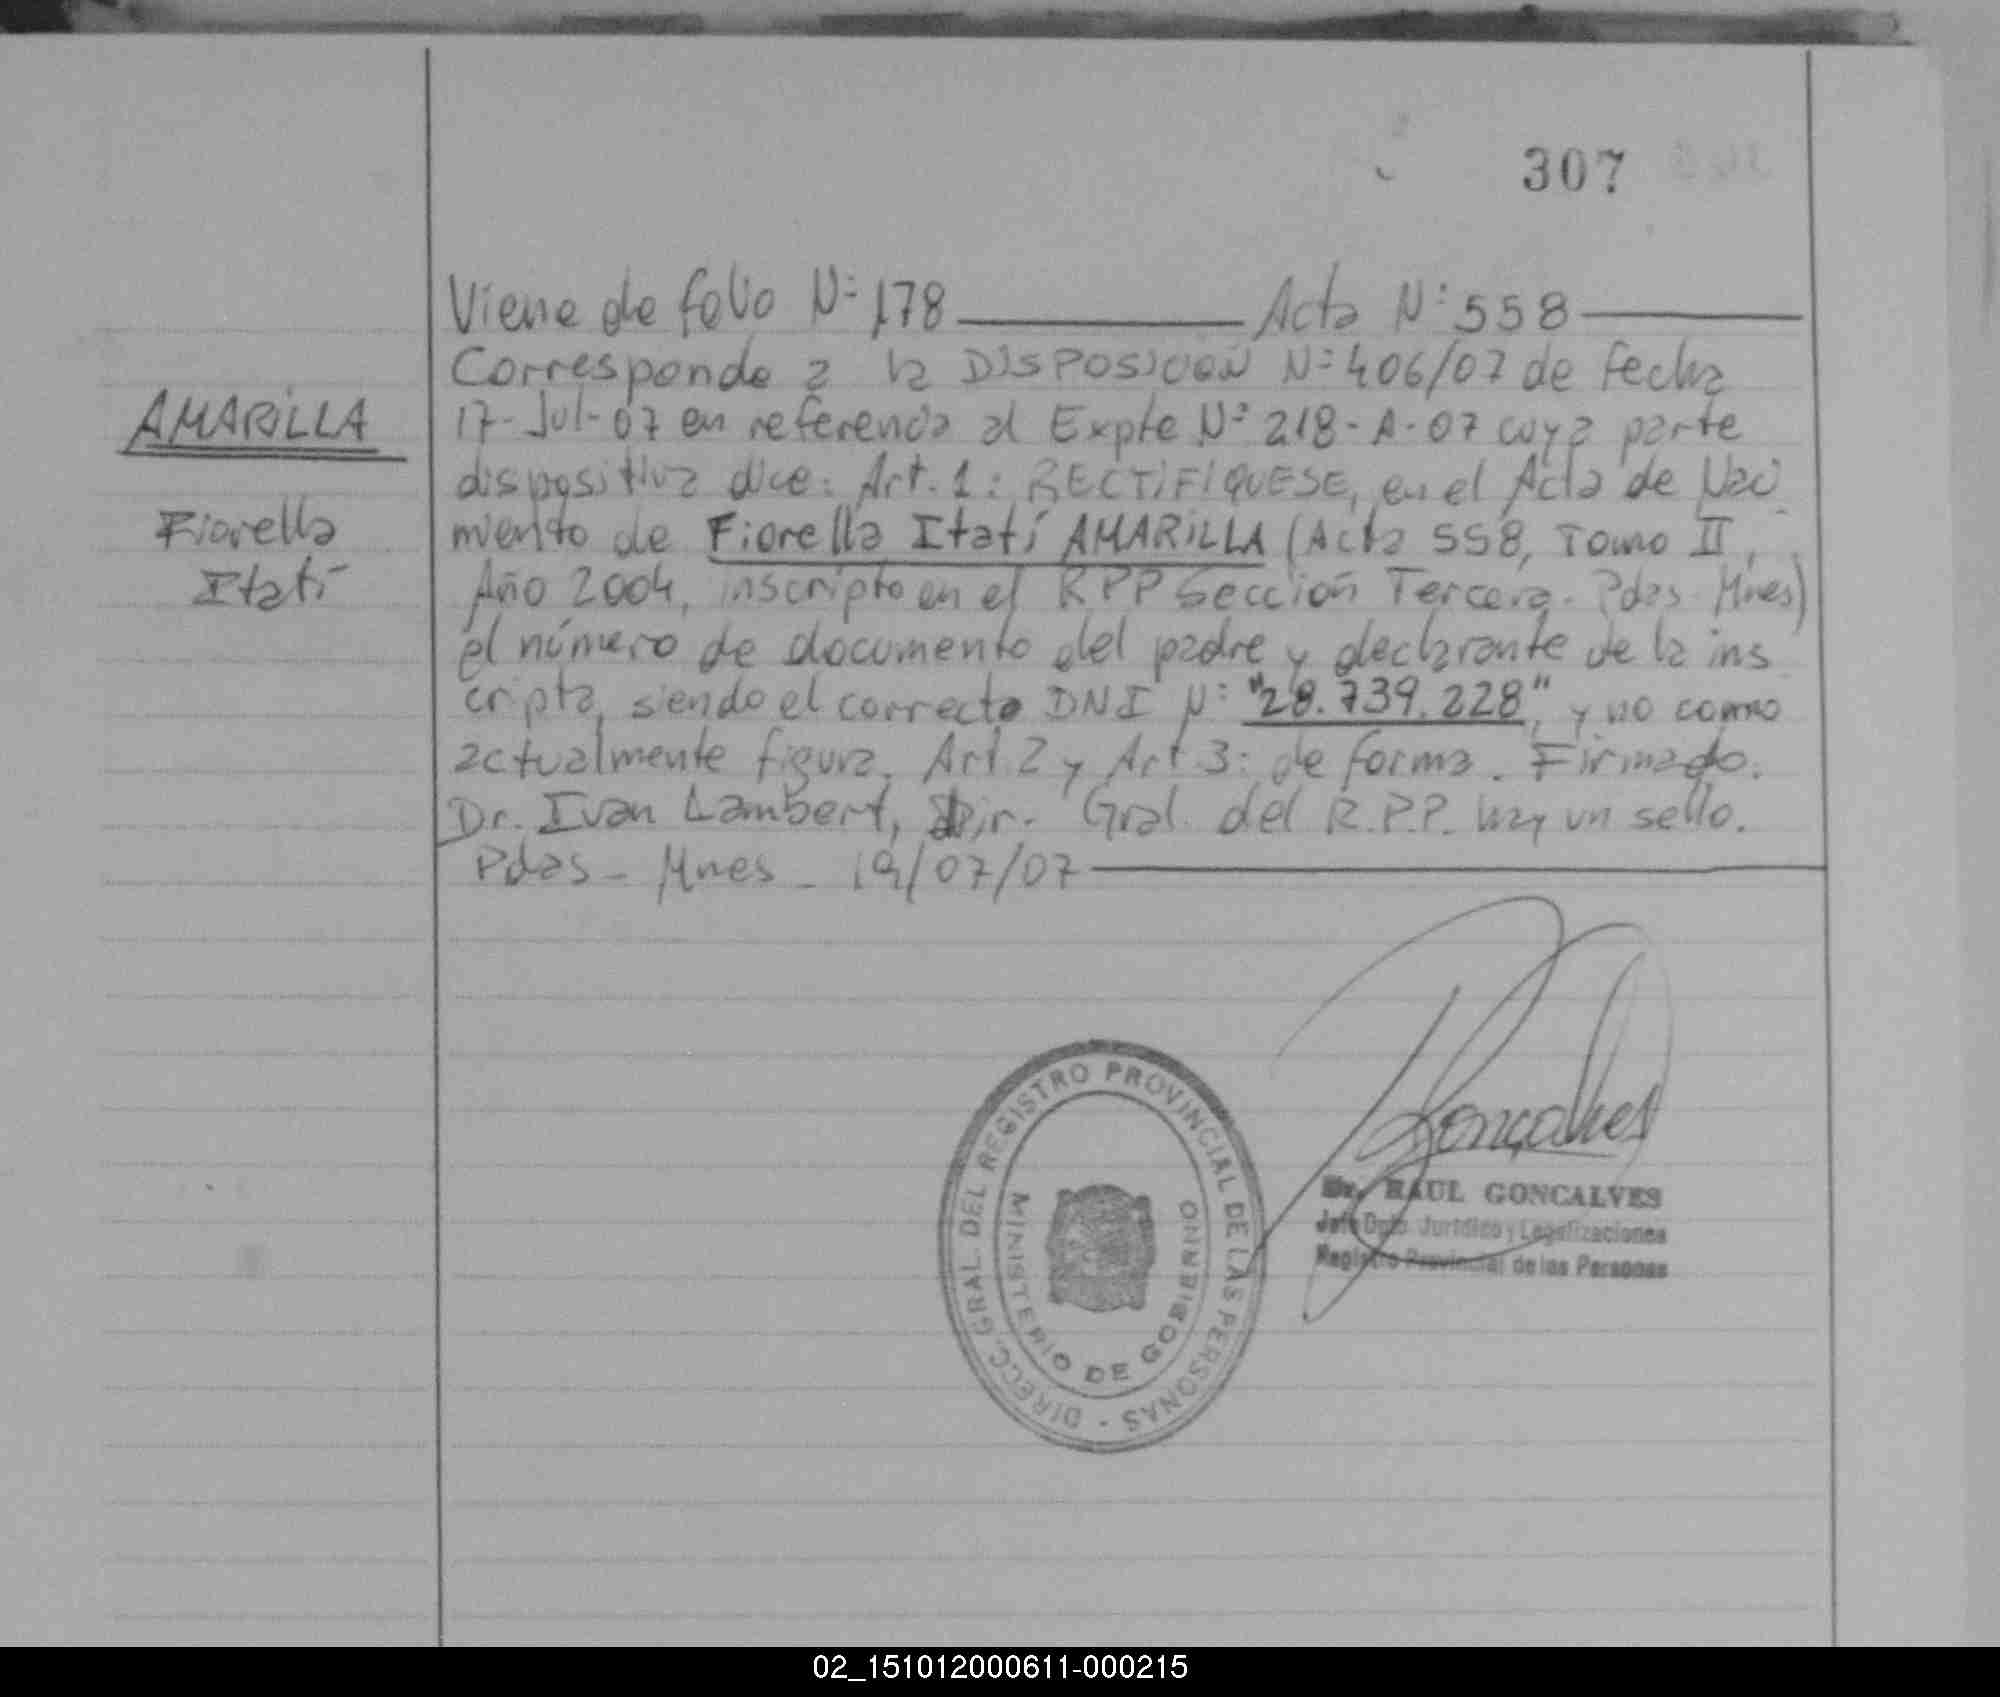 307
Viene de folio Nº 178 Acta Nº 558
Corresponde a la DISPOSICION Nº 406/07 de fecha
17-Jul-07 en referencia al Expte Nº 218-A-07 cuya parte
dispositiva dice: Art. 1: RECTIFIQUESE, en el Acta de Naci
miento de Fiorella Itatí AMARILLA (Acta 558, Tomo II,
Año 2004, inscripto en el RPP Sección Tercera. Pdas. Mnes)
el número de documento del padre y declarante de la ins
cripta, siendo el correcto DNI Nº "28.739.228", y no como
actualmente figura. Art. 2 y Art. 3: de forma. Firmado.
Dr. Ivan Lambert, Dir. Gral. del R.P.P. hay un sello.
Pdas - Mnes - 19/07/07
AMARILLA
Fiorella
Itatí
DIRECC. GRAL. DEL REGISTRO PROVINCIAL DE LAS PERSONAS -
MINISTERIO DE GOBIERNO
Goncalves
Dr. RAUL GONCALVES
Jefe Dpto. Jurídico y Legalizaciones
Registro Provincial de las Personas
02_151012000611-000215